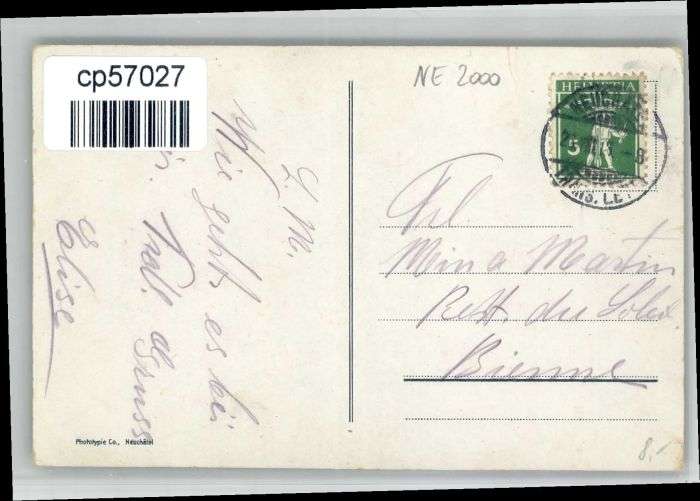 cp57027
NE 2000
HELVETIA
5
L. M.
Wie geht es bei
Frdl. Gruss
Elise
Frl.
Mina Martin
Rest. du Soleil
Bienne
Phototypie Co., Neuchâtel
8.-